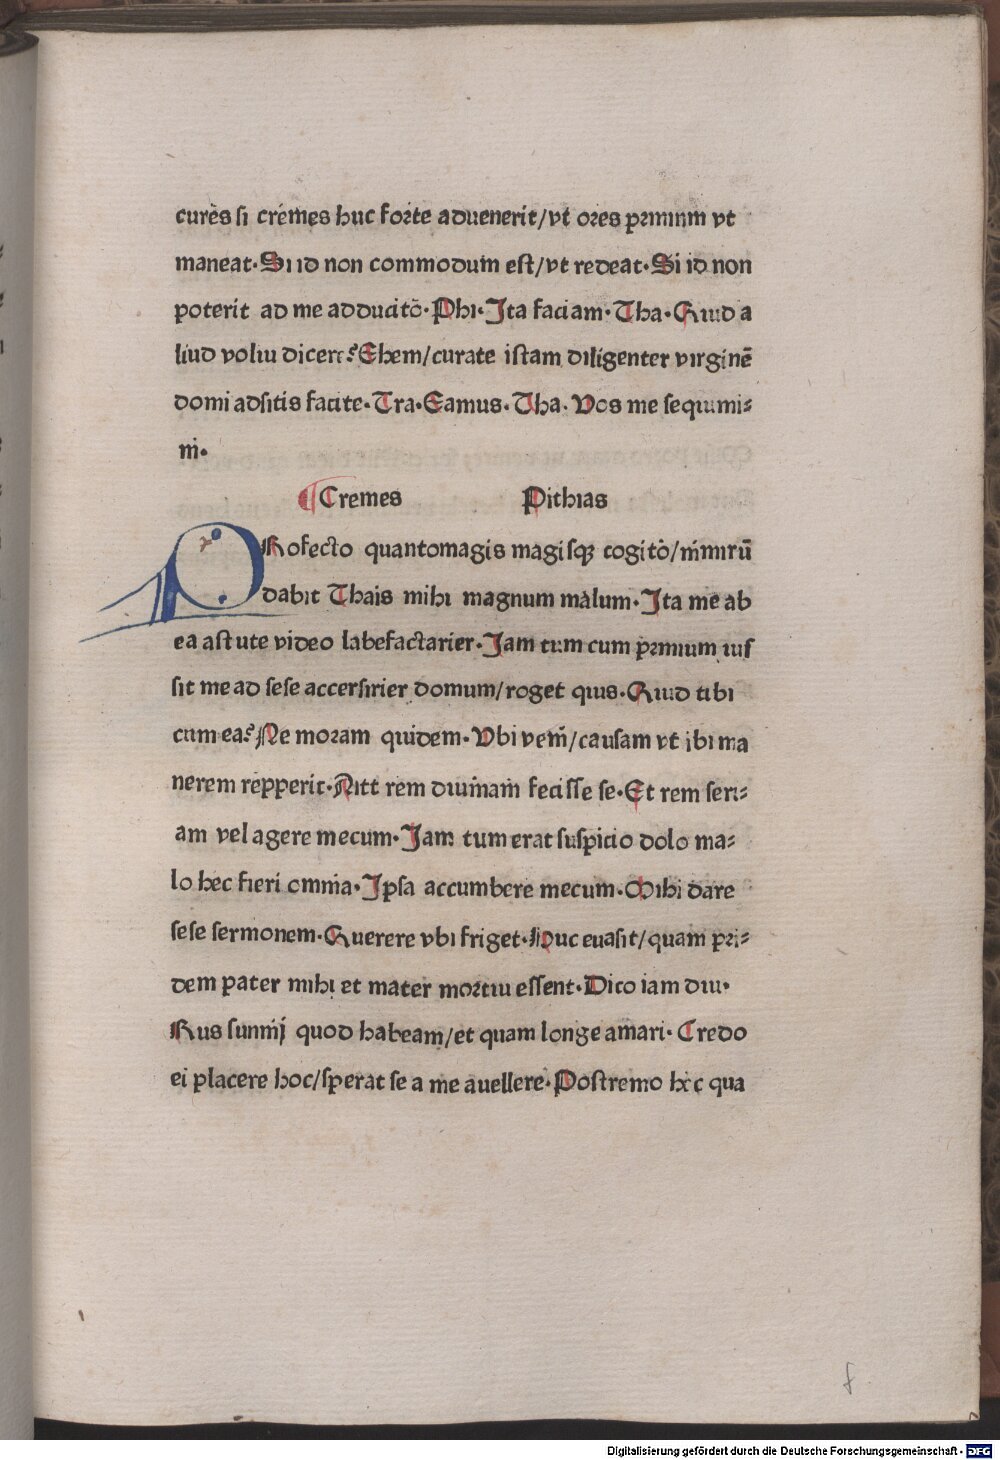 curēs si crémes huc forte aduenerit/vt ores primum vt
maneat. Si id non commodum est/vt redeat. Si id non
poterit ad me adducitō. Phi. Ita faciam. Tha. Quid a
liud volui dicere? Ehem/curate istam diligenter virginē
domi adsitis facite. Tra. Eamus. Tha. Vos me sequimi⸗
ni.
Cremes Pithias
PRofecto quantomagis magisqꝫ cogito/nimirū
dabit Thais mihi magnum malum. Ita me ab
ea astute video labefactarier. Jam tum cum primum ius
sit me ad sese accersirier domum/roget quis. Quid tibi
cum ea? Ne moram quidem. Vbi veni/causam vt ibi ma
nerem repperit. Aitt rem diuinam fecisse se. Et rem seri⸗
am vel agere mecum. Jam tum erat suspicio dolo ma⸗
lo hec fieri omnia. Ipsa accumbere mecum. Mihi dare
sese sermonem. Querere vbi friget. Huc euasit/quam pri⸗
dem pater mihi et mater mortui essent. Dico iam diu.
Rus sunnij quod habeam/et quam longe amari. Credo
ei placere hoc/sperat se a me auellere. Postremo hec qua
f
Digitalisierung gefördert durch die Deutsche Forschungsgemeinschaft - DFG